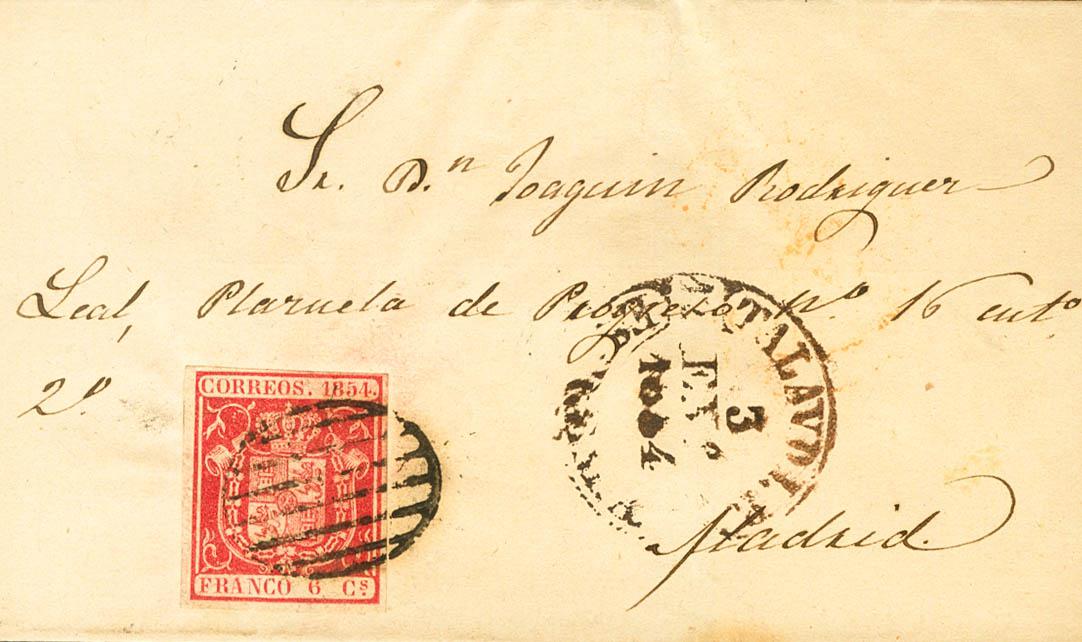 Sr. D.n Joaquin Rodriguez
Leal, Plazuela de Progreso Nº. 16 cutº
2º.
CORREOS. 1854.
FRANCO 6 Cs.
TALAV
3
Eº
4
Madrid.